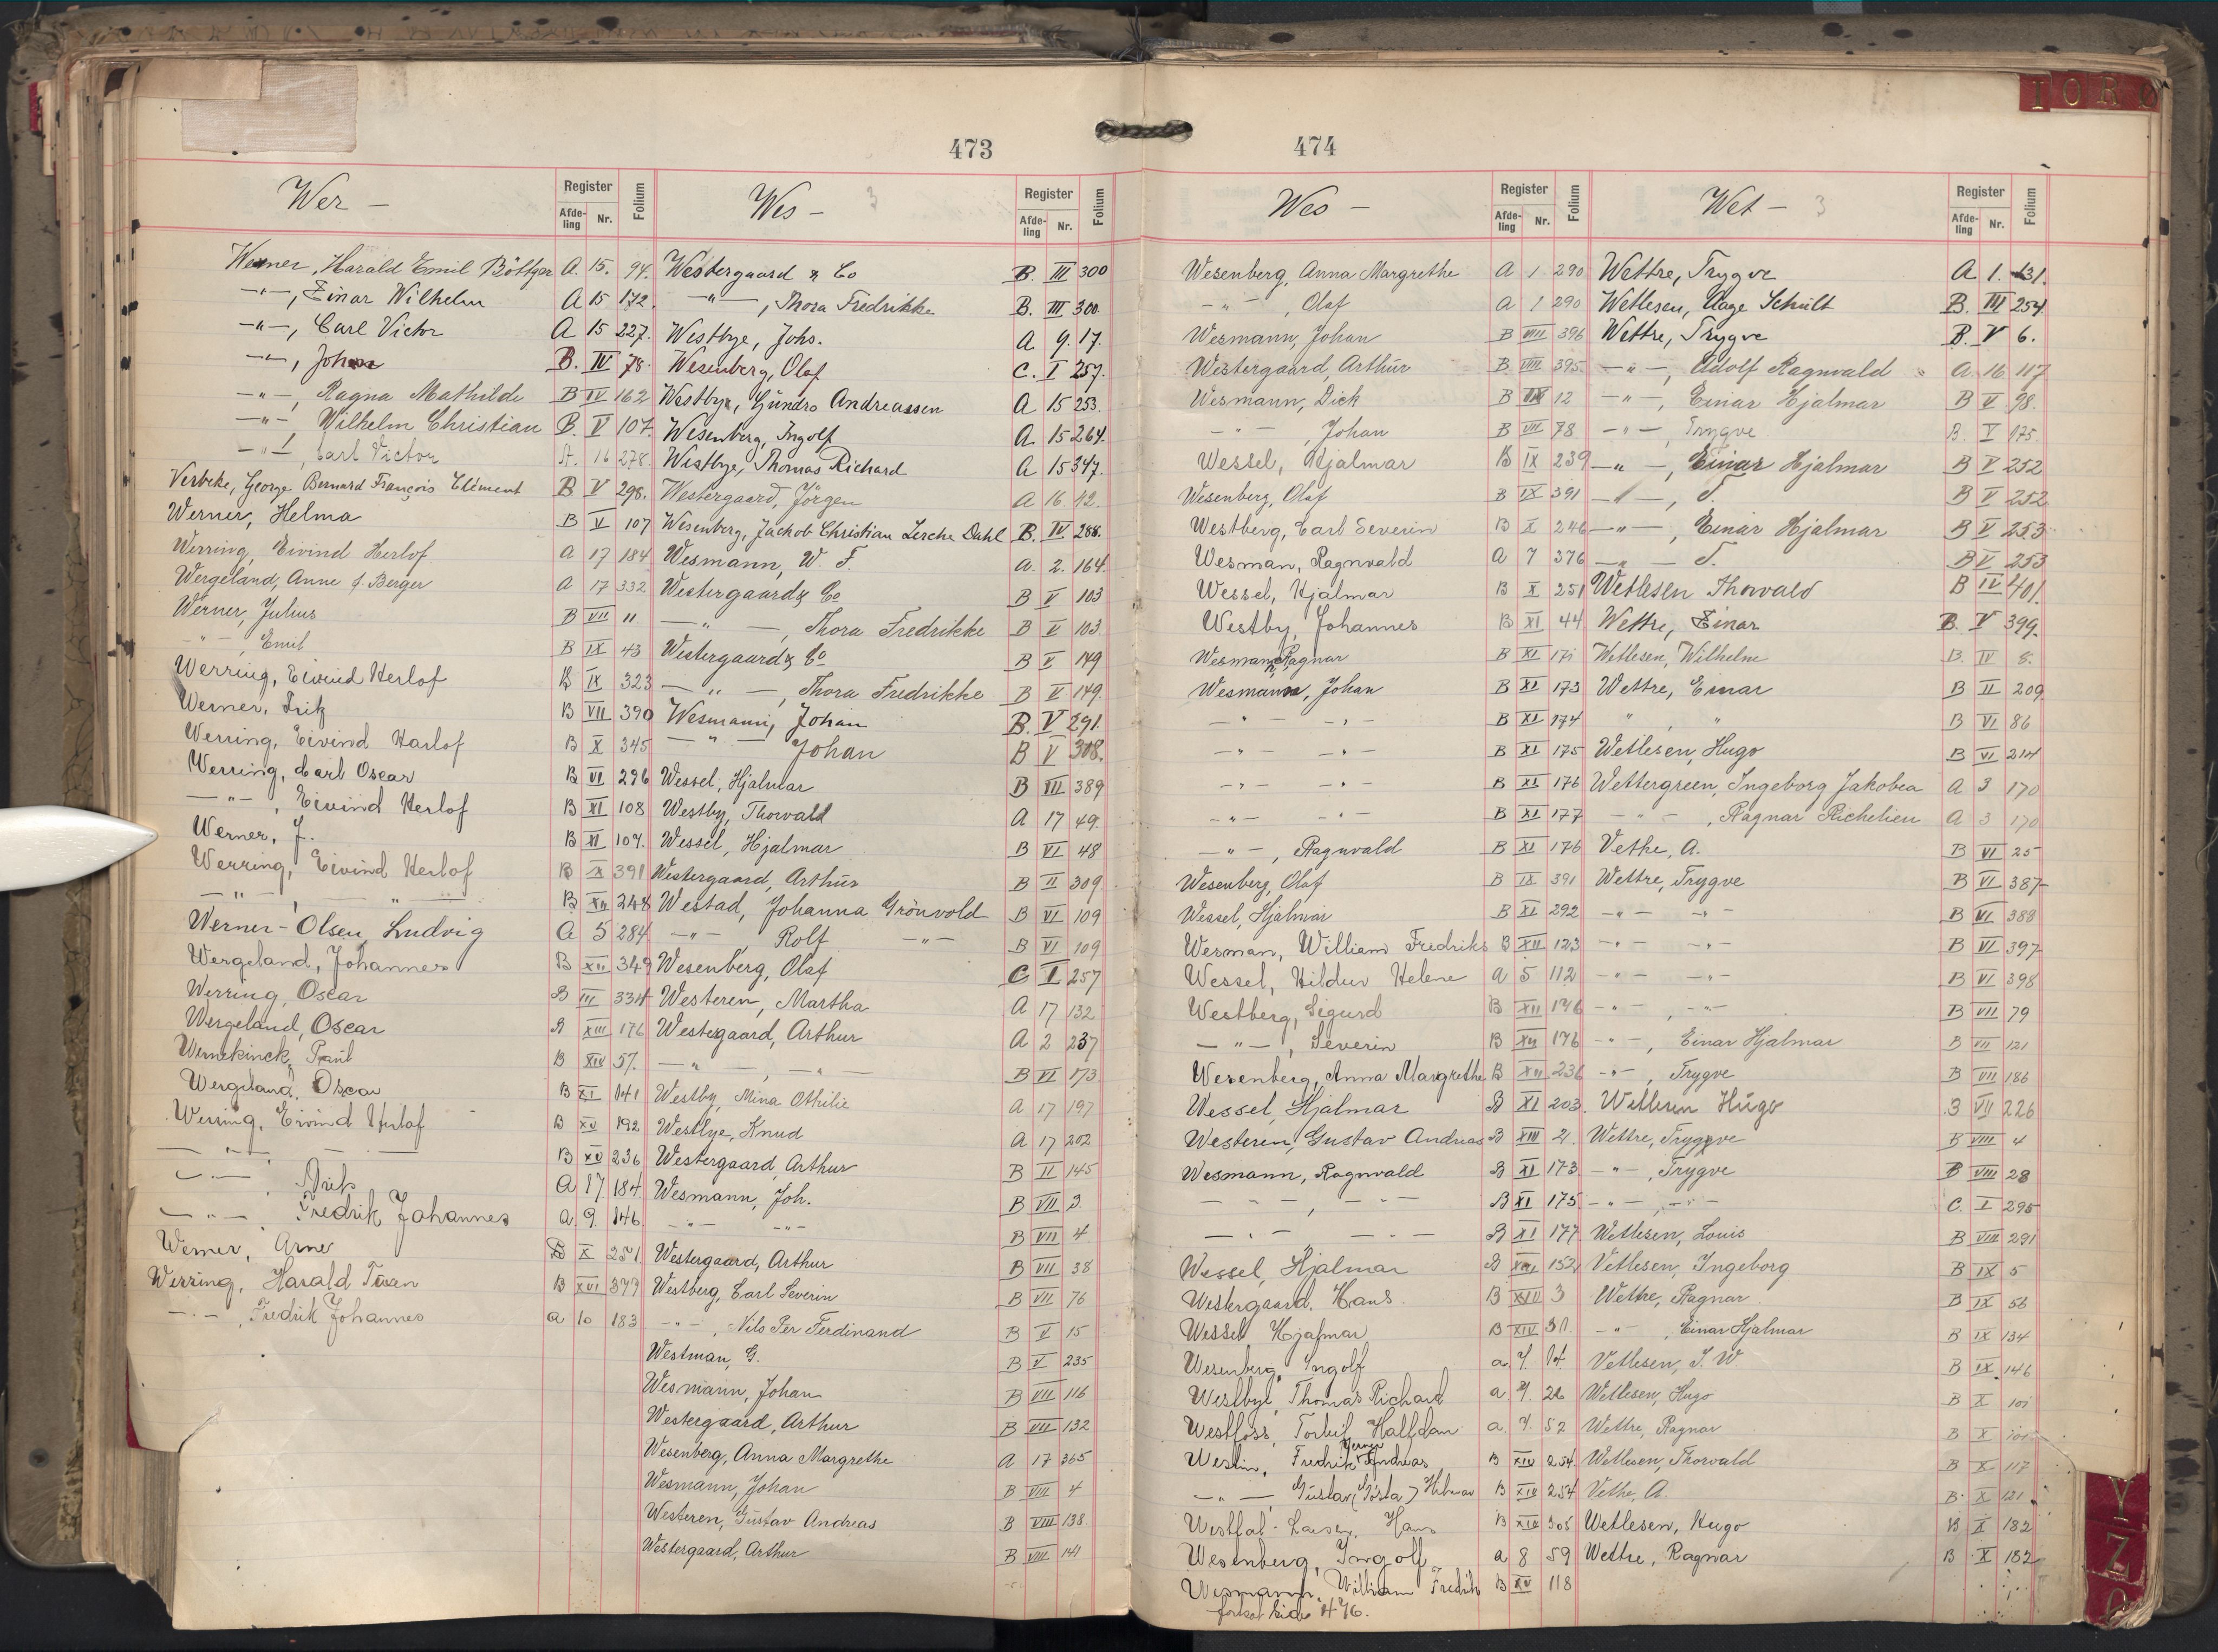 473
Wer —
Register
Afde-ling
Nr.
Folium
Werner, Harald Emil Böttger A. 15. 94.
—"—, Einar Wilhelm A 15 172.
—"—, Carl Victor A 15 227.
—"—, Johan B. IV 78.
—"—, Ragna Mathilde B IV 162
—"— Wilhelm Christian B. V 107.
—"—, Carl Victor A. 16 278.
Verbeke, George Bernard François Clément B V 298.
Werner, Helma B V 107
Werring, Eivind Herlof A 17 184
Wergeland, Anne f. Berger A 17 332
Werner, Julius B VII 11
—"—, Emil B IX 43
Werring, Eivind Herlof B IX 323
Werner, Fritz B VII 390
Werring, Eivind Harlof B X 345
Werring, Carl Oscar B VI 296
—"—, Eivind Herlof B XI 108
Werner, J. B XI 109.
Werring, Eivind Herlof B X 391
—"—, —"— B XII 248
Werner-Olsen, Ludvig A 5 284
Wergeland, Johannes B XII 349
Werring, Oscar B III 334
Wergeland, Oscar B XIII 176
Wernekinck, Paul B XIV 57.
Wergeland, Oscar B XI 141
Werring, Eivind Herlof B XV 192
—"— B XV 236
—"—, A 17 184
—"—, Fredrik Johannes a 9 146
Werner, Arne B X 251
Werring, Harald Tveen B XVI 399
—"—, Fredrik Johannes a 10 183
Wes — 3
Register
Afde-ling
Nr.
Folium
Westergaard & Co B. III 300
—"—, Thora Fredrikke B. III 300
Westbye, Johs. A. 9. 17.
Wesenberg, Olaf C. I 257.
Westbye, Gundro Andreassen A 15 253.
Wesenberg, Ingolf A. 15 264.
Westbye, Thomas Richard A 15 347.
Westergaard, Jörgen A 16 12.
Wesenberg, Jackob Christian Lerche Dahl B. IV 288.
Wesmann, W. F. A. 2. 164.
Westergaard & Co B V 103
—"—, Thora Fredrikke B V 103
Westergaard & Co B V 149
—"—, Thora Fredrikke B V 149.
Wesmann, Johan B. V 291.
—"— Johan B V 308.
Wessel, Hjalmar B VII 389
Westby, Thorvald A 17 49.
Wessel, Hjalmar B VI 48
Westergaard, Arthur B II 309
Westad, Johanna Grönvold B VI 109
—"—, Rolf —"— B VI 109
Wesenberg, Olaf C I 257
Westeren, Martha A 17 132
Westergaard, Arthur A 2 237
—"—, —"— B VI 173
Westby, Mina Othilie A 17 197
Westlye, Knud A 17 202
Westergaard, Arthur B II 145
Wesmann, Joh. B VII 3.
—"— —"— B VII 4
Westergaard, Arthur B VII 38
Westberg, Carl Severin B VII 76
—"—, Nils Per Ferdinand B V 15
Westman, G. B V 235
Wesmann, Johan B VII 116
Westergaard, Arthur B VII 132
Wesenberg, Anna Margrethe A 17 365
Wesmann, Johan B VIII 4
Westeren, Gustav Andreas B VIII 138
Westergaard, Arthur B VIII 141
474
Wes —
Register
Afde-ling
Nr.
Folium
Wesenberg, Anna Margrethe A 1 290
—"—, Olaf A 1 290
Wesmann, Johan B VIII 396
Westergaard, Arthur B. VIII 395
Wesmann, Dick B 12
—"—, Johan B VII 78
Wessel, Hjalmar B IX 239
Wesenberg, Olaf B IX 391
Westberg, Carl Severin B X 246
Wesman, Ragnvald A 7 376
Wessel, Hjalmar B X 251
Westby, Johannes B XI 44
Wesmann, Ragnar B XI 171
Wesmann, Johan B XI 173
—"— —"— B XI 174
—"— —"— B XI 175
—"— —"— B XI 176
—"— —"— B XI 177
—"—, Ragnvald B XI 176
Wesenberg, Olaf B IX 391
Wessel, Hjalmar B XI 292
Wesman, William Fredriks B XII 123
Wessel, Hildur Helene a 5 112
Westberg, Sigurd B XII 176
—"—, Severin B XII 176
Wesenberg, Anna Margrethe B XII 236
Wessel, Hjalmar B XI 203.
Westeren, Gustav Andreas B XIII 2.
Wesmann, Ragnvald B XI 173
—"—, —"— B XI 175
—"— —"— B XI 177
Wessel, Hjalmar B XIII 152
Westergaard, Hans B XIV 3
Wessel Hjalmar B XIV 30.
Wesenberg, Ingolf a. 7. 14.
Westbye, Thomas Richard a 7. 22
Westfoss, Torleif Halfdan a. 7. 52
Westin, Fredrik Verner Andreas B XIV 254
—"—, Gustav (Gösta) B XIV 254
Westfal-Larsen, Hans B XIV 305
Wesenberg, Ingolf a 8 59
Wesmann, William Fredrik B XV 118
forts. side 476.
Wet — 3
Register
Afde-ling
Nr.
Folium
Wettre, Trygve A 1. 131.
Wetlesen, Aage Schult B. III 254.
Wettre, Trygve B. V 6.
—"—, Adolf Ragnvald A 16 117
—"—, Einar Hjalmar B V 98.
—"—, Trygve B. V 175.
—"—, Einar Hjalmar B V 252
—"—, T. B V 252
—"—, Einar Hjalmar B V 253
—"— T. B V 253
Wetlesen Thorvald B IV 401.
Wettre, Einar B. V 399.
Wetlesen, Wilhelm B. IV 8.
Wettre, Einar B II 209
" " B VI 86
Wetlesen, Hugo B VI 214
Wettergreen, Ingeborg Jakobea A 3 170
—"—, Ragnar Richelieu A 3 170
Vethe, A. B VI 25
Wettre, Trygve B VI 387
—"— —"— B VI 388
—"— —"— B VI 397
—"— —"— B VI 398
—"—, —"— B VII 79
—"—, Einar Hjalmar B VII 121
—"—, Trygve B VII 186
Wetlesen Hugo B VII 226
Wettre, Trygve B VIII 4
—"—, Trygve B VIII 28
—"—, —"— C. I 295
Wetlesen, Louis B VIII 291
Vetlesen, Ingeborg B IX 5
Wettre, Ragnar B IX 56
—"—, Einar Hjalmar B IX 134
Vetlesen, I. W B IX 146
Wetlesen, Hugo B X 101
Wettre, Ragnar B X 101
Wetlesen, Thorvald B X 117
Vethe, A. B. X 121
Wetlesen, Hugo B X 182
Wettre, Ragnar B X 182
I O R
Y
Z